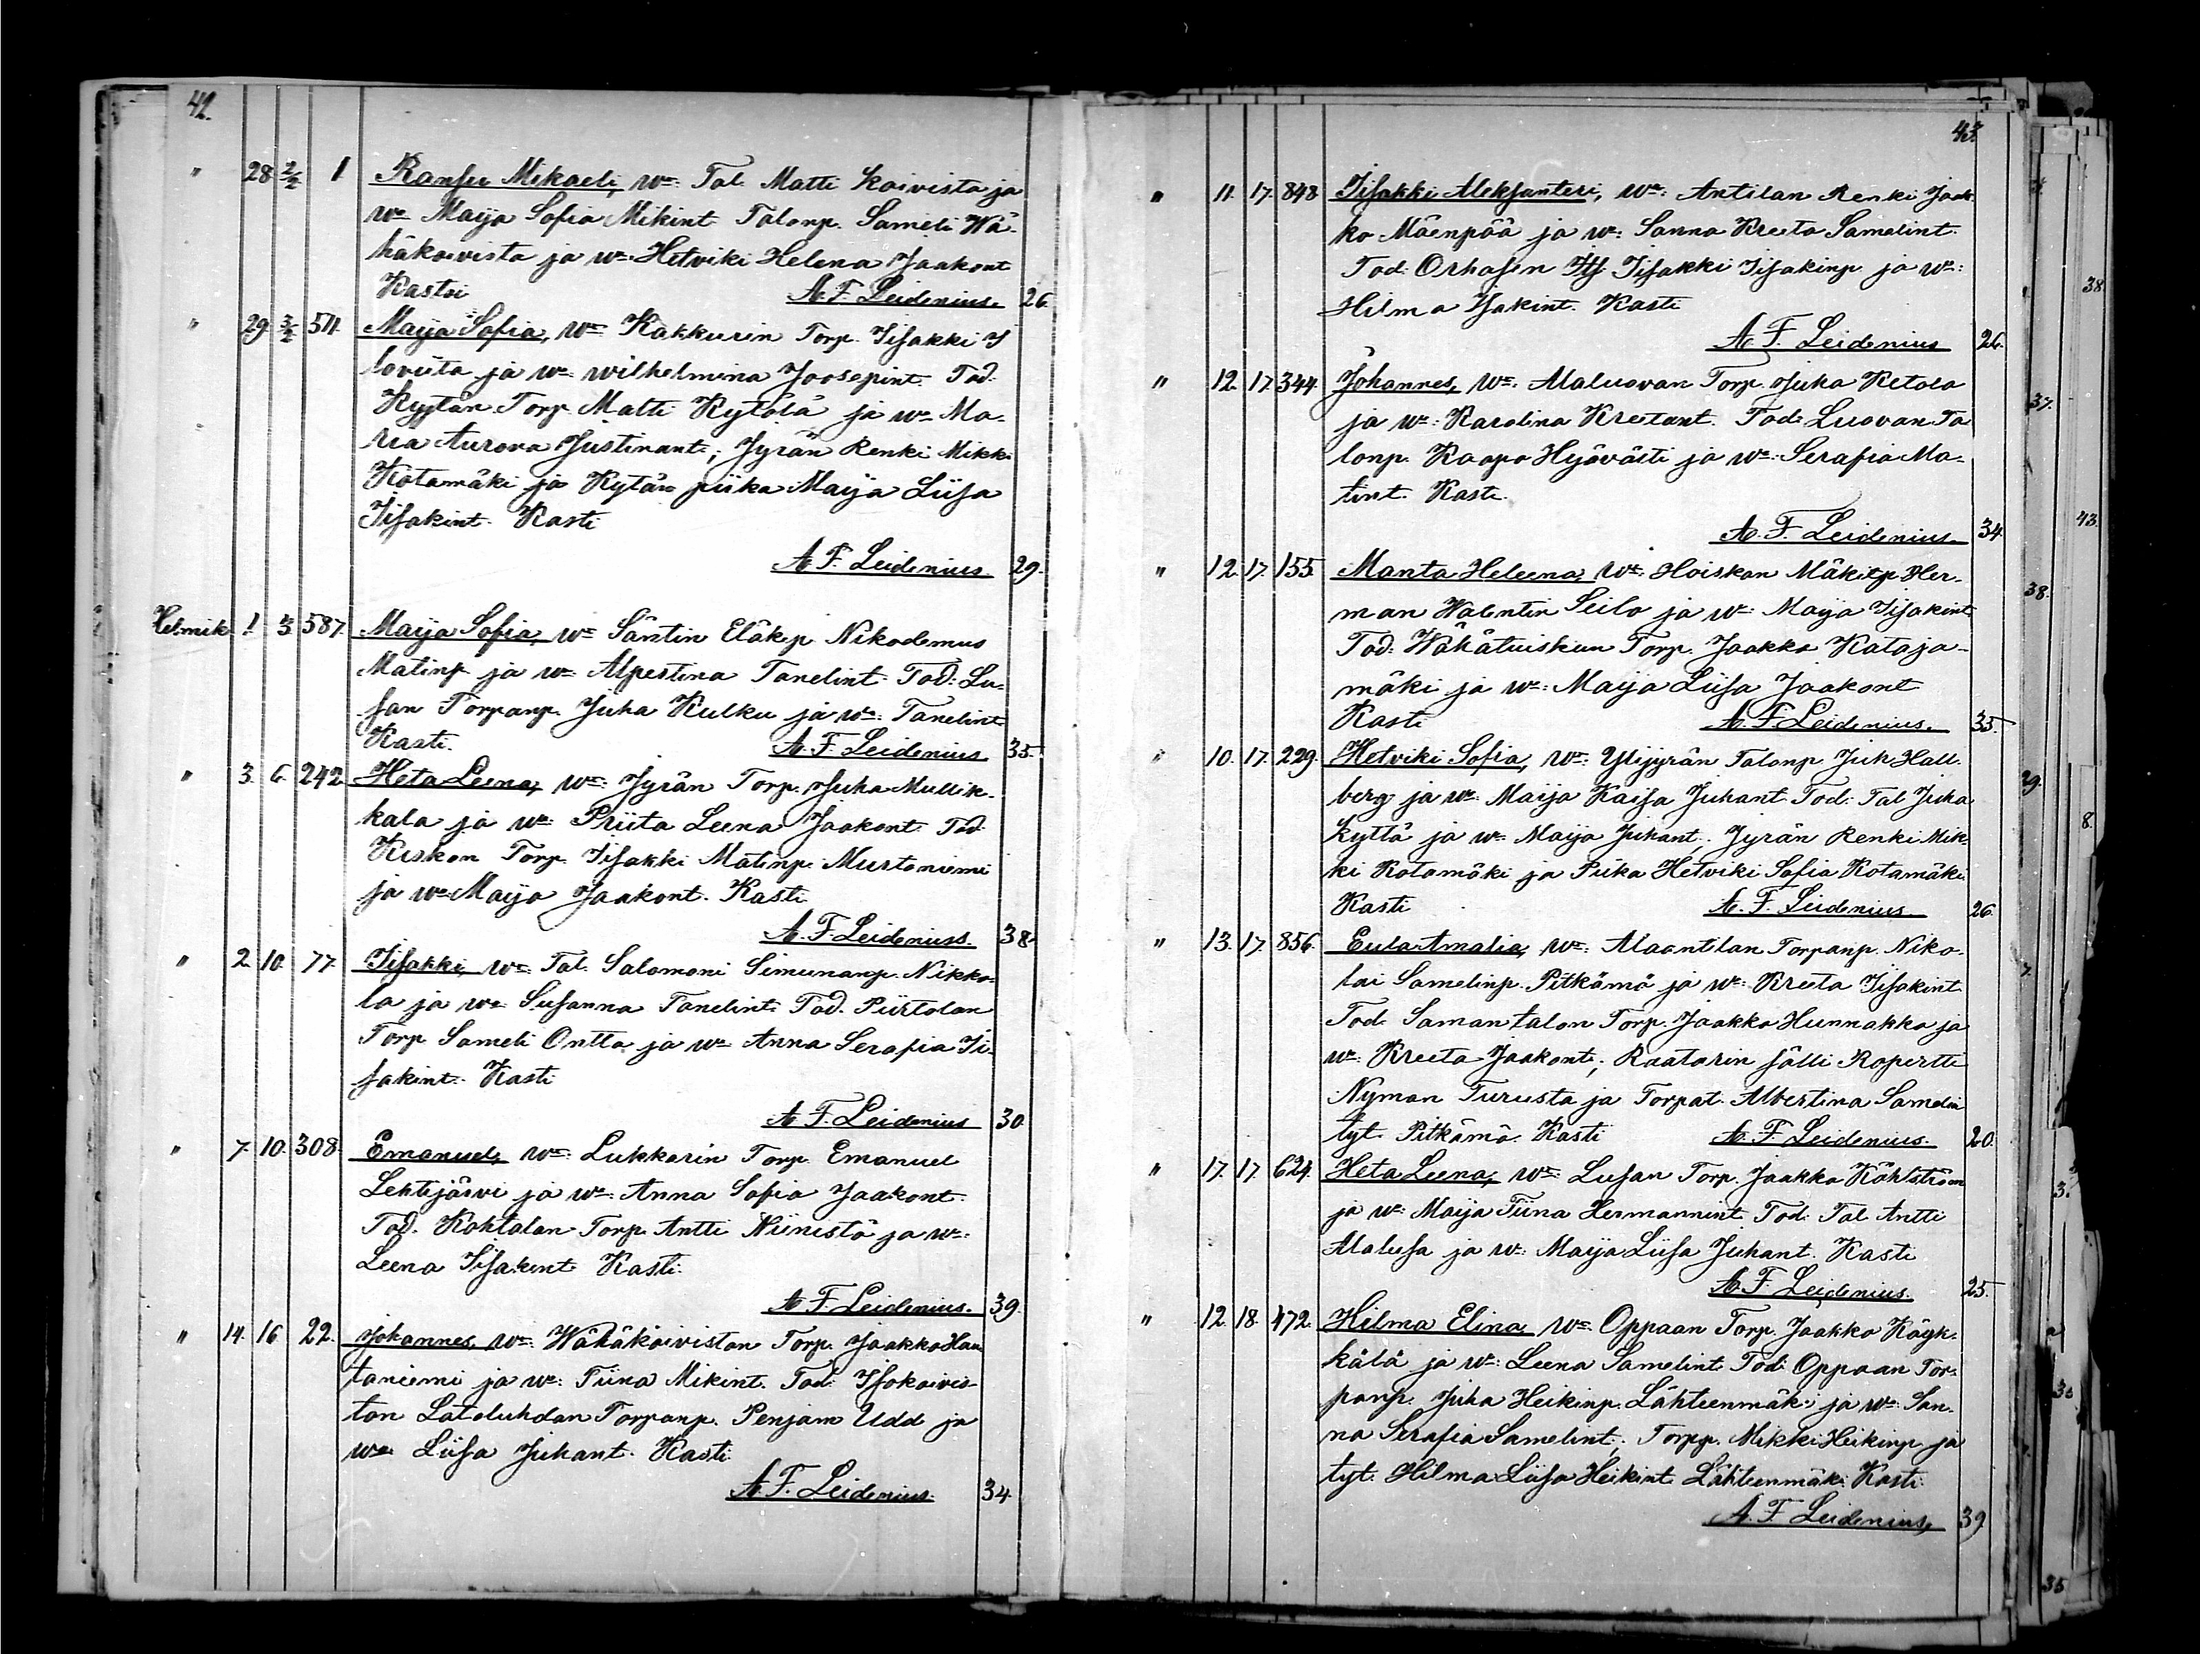 42.
" 28 2/2 1 Ransu Mikaeli, Wm: Tal. Matti Koivista ja
wm Maija Sofia Mikint Talonp. Sameli Wä-
häkoivista ja wm Hetviki Helena Jaakont
Kasti A. F. Leidenius. 26.
" 29 3/2 511. Maija Sofia, Wm Kakkurin Torp. Iisakki I
loviita ja wm wilhelmina Joosepint. Tod.
Kyttän Torp. Matti Kytölä ja wm Ma-
ria Aurora Justinant; Jyrän Renki Mikki
Kotamäki ja Kytän piika Maija Liisa
Iisakint. Kasti
A. F. Leidenius 29.
Helmik 1. 3. 587. Maija Sofia, Wm Säntin Eläkp Nikodemus
Matinp ja wm Alpertina Tanelint Tod: Lu-
san Torpanp. Juha Kulku ja wm: Tanelint
Kasti. A. F. Leidenius 35.
" 3. 6. 242 Heta Leena, Wm: Jyrän Torp. Juha Mullik-
kala ja wm: Priita Leena Jaakont. Tod
Kiskon Torp. Iisakki Matinp. Murtoniemi
ja wm Maija Jaakont. Kasti
A. F. Leideniuss. 38.
" 2 10. 77. Iisakki, Wm: Tal. Salomoni Simunanp. Nikko-
la ja wm Susanna Tanelint. Tod. Piirtolan
Torp Sameli Ontto ja wm Anna Serafia Ii-
sakint. Kasti
A. F. Leidenius 30.
" 7. 10. 308. Emanuel, Wm: Lukkarin Torp. Emanuel
Lehtijärvi ja wm: Anna Sofia Jaakont.
Tod. Kohtalan Torp Antti Niinistö ja wm:
Leena Iisakint Kasti.
A. F. Leidenius. 39.
" 14. 16 22. Johannes, Wm: Wähäkoiviston Torp. Jaakko Hau
taniemi ja wm: Tiina Mikint. Tod: Isokoivis-
ton Latoluhdan Torpanp. Penjam Udd ja
wm Liisa Juhant. Kasti.
A. F. Leidenius. 34
43.
" 11. 17. 848 Iisakki Aleksanteri, Wm: Antilan Renki Jaak-
ko Mäenpää ja wm: Sanna Kreeta Samelint.
Tod: Orhasen Its. Iisakki Iisakinp ja wm:
Hilma Isakint. Kasti
A. F. Leidenius 26.
" 12. 17. 344. Johannes, Wm: Alaluovan Torp. Juha Ketola
ja wm: Karolina Kreetant. Tod: Luovan Ta
lonp. Kaapo Hyövästi ja wm: Serafia Ma-
tint. Kasti.
A. F. Leidenius. 34.
" 12. 17. 155. Manta Heleena, Wm: Hoiskan Mäkitp Her-
man Walentin Seilo ja wm: Maija Iisakint
Tod: Wähätuiskun Torp. Jaakko Kataja-
mäki ja wm: Maija Liisa Jaakont
Kasti A. F. Leidenius. 35.
" 10. 17. 229. Hetviki Sofia, Wm: Ylijyrän Talonp Juh Hall-
berg ja wm: Maija Kaisa Juhant Tod: Tal Juha
Kyttä ja wm Maija Juhant; Jyrän Renki Mik-
ki Kotamäki ja Piika Hetviki Sofia Kotamäki
Kasti A. F. Leidenius 26.
" 13. 17. 856. Eula Amalia, Wm: Alaantilan Torpanp. Niko-
lai Samelinp. Pitkämä ja wm: Kreeta Iisakint
Tod: Samantalon Torp. Jaakko Hunnakko ja
wm: Kreeta Jaakont; Raatarin sälli Ropertti
Nyman Turusta ja Torpat. Albertina Samelin
tyt. Pitkämä. Kasti A. F. Leidenius. 20.
" 17. 17. 624. Heta Leena, Wm: Lusan Torp. Jaakko Köhlström
ja wm: Maija Tiina Hermannint. Tod: Tal Antti
Alalusa ja wm: Maija Liisa Juhant. Kasti
A. F. Leidenius. 25.
" 12. 18. 472. Hilma Elina, Wm: Oppaan Torp. Jaakko Käyk-
kälä ja wm: Leena Samelint. Tod: Oppaan Tor-
panp. Juha Heikinp. Lähteenmäki ja wm: San-
na Serafia Samelint; Torpp. Mikki Heikinp ja
tyt. Hilma Liisa Heikint Lähteenmäki. Kasti.
A. F. Leidenius, 39